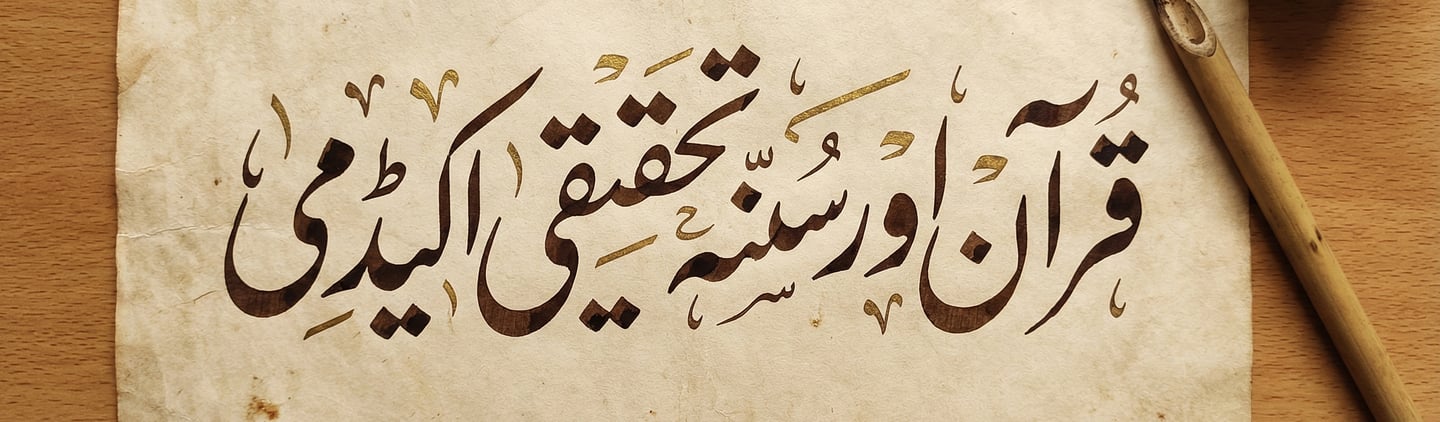 قُرآن اور سُنّہ تحقیقی اکیڈمِی